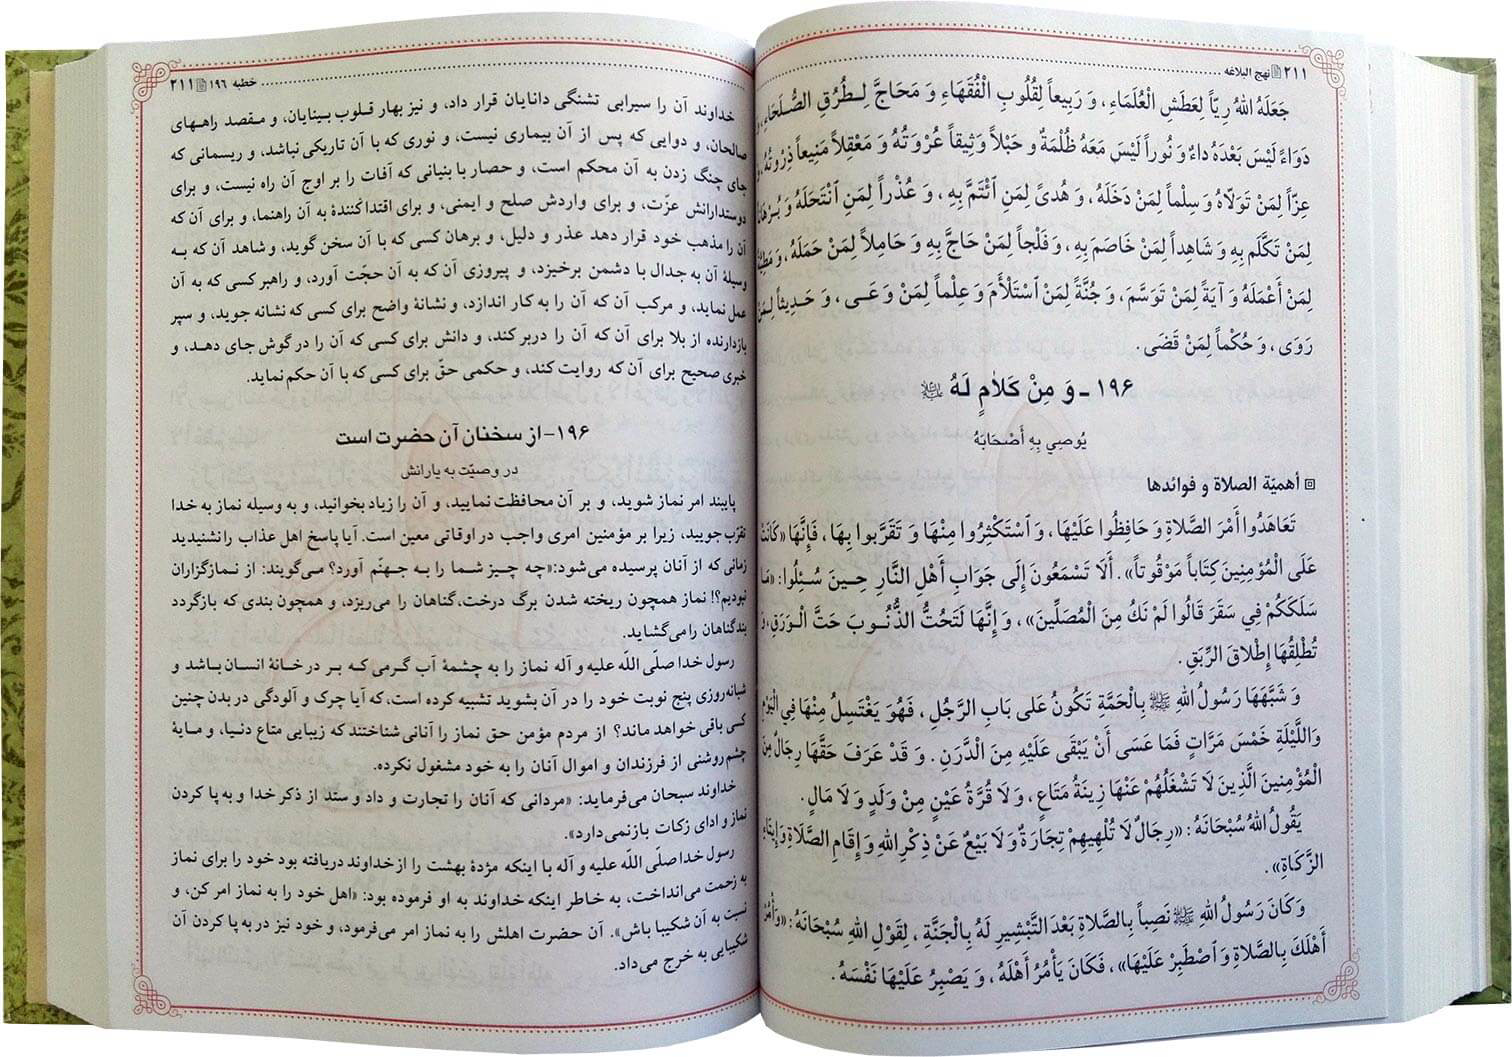 ۲۱۱ نهج البلاغه
جَعَلَهُ اللهُ رِيّاً لِعَطَشِ الْعُلَمَاءِ، وَ رَبِيعاً لِقُلُوبِ الْفُقَهَاءِ وَ مَحَاجَّ لِطُرُقِ الصُّلَحَاءِ، وَ
دَوَاءً لَيْسَ بَعْدَهُ داءٌ وَ نُوراً لَيْسَ مَعَهُ ظُلْمَةٌ وَ حَبْلاً وَثِيقاً عُرْوَتُهُ وَ مَعْقِلاً مَنِيعاً ذِرْوَتُهُ، وَ
عِزّاً لِمَنْ تَوَلّاهُ وَ سِلْماً لِمَنْ دَخَلَهُ، وَ هُدىً لِمَنِ ٱئْتَمَّ بِهِ، وَ عُذْراً لِمَنِ ٱنْتَحَلَهُ وَ بُرْهَاناً
لِمَنْ تَكَلَّمَ بِهِ وَ شَاهِداً لِمَنْ خَاصَمَ بِهِ، وَ فَلْجاً لِمَنْ حَاجَّ بِهِ وَ حَامِلاً لِمَنْ حَمَلَهُ، وَ مَطِيَّةً
لِمَنْ أَعْمَلَهُ وَ آيَةً لِمَنْ تَوَسَّمَ، وَ جُنَّةً لِمَنْ ٱسْتَلْأَمَ وَ عِلْماً لِمَنْ وَعَى، وَ حَدِيثاً لِمَنْ
رَوَى، وَ حُكْماً لِمَنْ قَضَى.
۱۹۶ - وَ مِنْ كَلَامٍ لَهُ
يُوصِي بِهِ أَصْحَابَهُ
أهميّة الصلاة و فوائدها
تَعَاهَدُوا أَمْرَ الصَّلَاةِ وَ حَافِظُوا عَلَيْهَا، وَ ٱسْتَكْثِرُوا مِنْهَا وَ تَقَرَّبُوا بِهَا، فَإِنَّهَا «كَانَتْ
عَلَى الْمُؤْمِنِينَ كِتَاباً مَوْقُوتاً». أَلَا تَسْمَعُونَ إِلَى جَوَابِ أَهْلِ النَّارِ حِينَ سُئِلُوا: «مَا
سَلَكَكُمْ فِي سَقَرَ قَالُوا لَمْ نَكُ مِنَ الْمُصَلِّينَ»، وَ إِنَّهَا لَتَحُتُّ الذُّنُوبَ حَتَّ الْوَرَقِ، وَ
تُطْلِقُهَا إِطْلَاقَ الرِّبَقِ.
وَ شَبَّهَهَا رَسُولُ اللهِ ﷺ بِالْحَمَّةِ تَكُونُ عَلَى بَابِ الرَّجُلِ، فَهُوَ يَغْتَسِلُ مِنْهَا فِي الْيَوْمِ
وَاللَّيْلَةِ خَمْسَ مَرَّاتٍ فَمَا عَسَى أَنْ يَبْقَى عَلَيْهِ مِنَ الدَّرَنِ. وَ قَدْ عَرَفَ حَقَّهَا رِجَالٌ مِنَ
الْمُؤْمِنِينَ الَّذِينَ لَا تَشْغَلُهُمْ عَنْهَا زِينَةُ مَتَاعٍ، وَ لَا قُرَّةُ عَيْنٍ مِنْ وَلَدٍ وَ لَا مَالٍ.
يَقُولُ اللهُ سُبْحَانَهُ: «رِجَالٌ لَا تُلْهِيهِمْ تِجَارَةٌ وَ لَا بَيْعٌ عَنْ ذِكْرِ اللهِ وَ إِقَامِ الصَّلَاةِ وَ إِيتَاءِ
الزَّكَاةِ».
وَ كَانَ رَسُولُ اللهِ ﷺ نَصِباً بِالصَّلَاةِ بَعْدَ التَّبْشِيرِ لَهُ بِالْجَنَّةِ، لِقَوْلِ اللهِ سُبْحَانَهُ: «وَأْمُرْ
أَهْلَكَ بِالصَّلَاةِ وَ ٱصْطَبِرْ عَلَيْهَا»، فَكَانَ يَأْمُرُ أَهْلَهُ، وَ يَصْبِرُ عَلَيْهَا نَفْسَهُ.
خطبه ۱۹۶ ۲۱۱
خداوند آن را سیرابی تشنگی دانایان قرار داد، و نیز بهار قلوب بینایان، و مقصد راههای
صالحان، و دوایی که پس از آن بیماری نیست، و نوری که با آن تاریکی نباشد، و ریسمانی که
جای چنگ زدن به آن محکم است، و حصار با بنیانی که آفات را بر اوج آن راه نیست، و برای
دوستدارانش عزّت، و برای واردش صلح و ایمنی، و برای اقتداکنندهٔ به آن راهنما، و برای آن که
آن را مذهب خود قرار دهد عذر و دلیل، و برهان کسی که با آن سخن گوید، و شاهد آن که به
وسیلهٔ آن به جدال با دشمن برخیزد، و پیروزی آن که به آن حجّت آورد، و راهبر کسی که به آن
عمل نماید، و مرکب آن که آن را به کار اندازد، و نشانهٔ واضح برای کسی که نشانه جوید، و سپر
بازدارنده از بلا برای آن که آن را دربر کند، و دانش برای کسی که آن را در گوش جای دهد، و
خبری صحیح برای آن که روایت کند، و حکمی حقّ برای کسی که با آن حکم نماید.
۱۹۶- از سخنان آن حضرت است
در وصیّت به یارانش
پایبند امر نماز شوید، و بر آن محافظت نمایید، و آن را زیاد بخوانید، و به وسیله نماز به خدا
تقرّب جویید، زیرا بر مؤمنین امری واجب در اوقاتی معین است. آیا پاسخ اهل عذاب را نشنیدید
زمانی که از آنان پرسیده می‌شود:«چه چیز شما را به جهنّم آورد؟ می‌گویند: از نمازگزاران
نبودیم»؟! نماز همچون ریخته شدن برگ درخت، گناهان را می‌ریزد، و همچون بندی که بازگردد
بند گناهان را می‌گشاید.
رسول خدا صلّی اللّه علیه و آله نماز را به چشمهٔ آب گرمی که بر در خانهٔ انسان باشد و
شبانه‌روزی پنج نوبت خود را در آن بشوید تشبیه کرده است، که آیا چرک و آلودگی در بدن چنین
کسی باقی خواهد ماند؟ از مردم مؤمن حق نماز را آنانی شناختند که زیبایی متاع دنیا، و مایهٔ
چشم‌روشنی از فرزندان و اموال آنان را به خود مشغول نکرده.
خداوند سبحان می‌فرماید: «مردانی که آنان را تجارت و داد و ستد از ذکر خدا و به پا کردن
نماز و ادای زکات بازنمی‌دارد».
رسول خدا صلّی اللّه علیه و آله با اینکه مژدهٔ بهشت را از خداوند دریافته بود خود را برای نماز
به زحمت می‌انداخت، به خاطر اینکه خداوند به او فرموده بود: «اهل خود را به نماز امر کن، و
نسبت به آن شکیبا باش». آن حضرت اهلش را به نماز امر می‌فرمود، و خود نیز در به پا کردن آن
شکیبایی به خرج می‌داد.